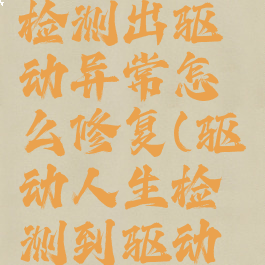 检测出驱
动异常怎
么修复(驱
动人生检
测到驱动